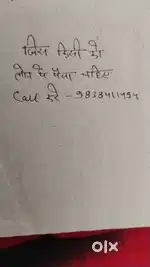 जिस किसी को
लोन पे पैसा चाहिए
Call करे - 9838411494
olx